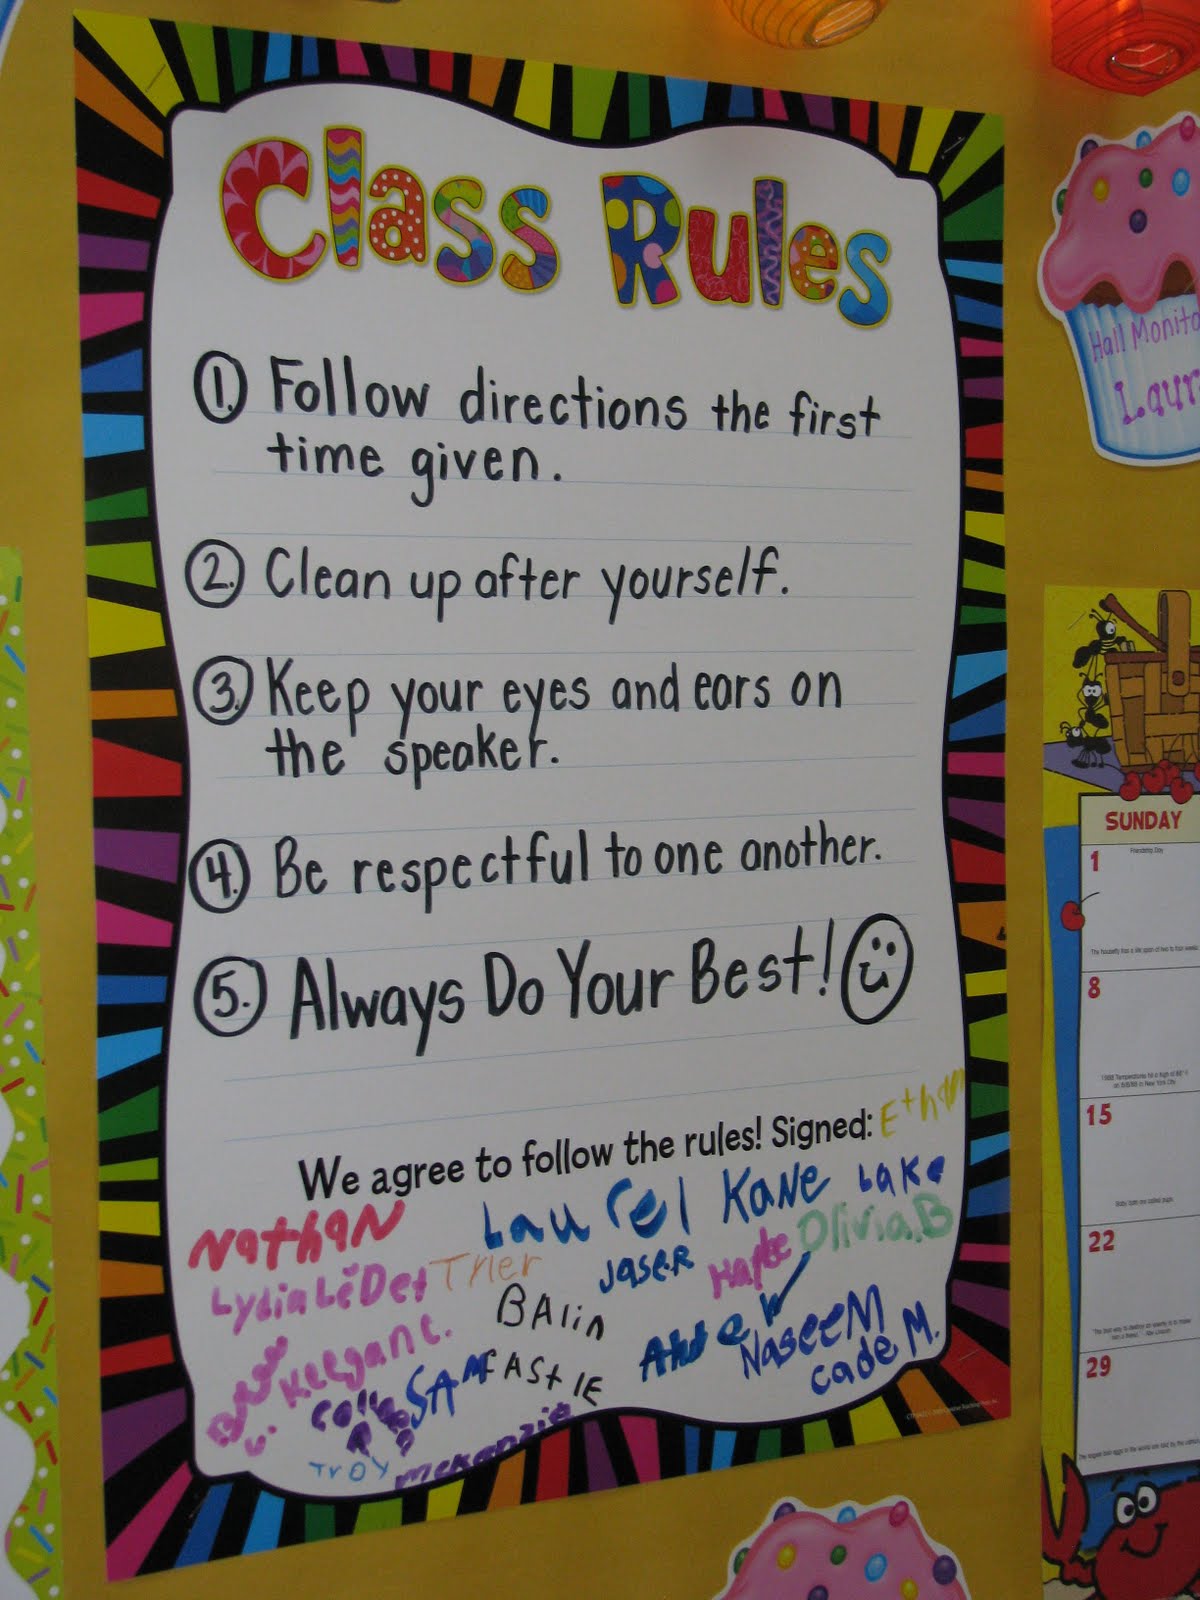 Class Rules
1. Follow directions the first
time given.
2. Clean up after yourself.
3. Keep your eyes and ears on
the speaker.
4. Be respectful to one another.
5. Always Do Your Best!
We agree to follow the rules! Signed: Ethan
Nathan Laurel Kane Lake
Lydia LeDet Tyler Jaser Olivia.B
Keegan C. BAlin Naseem
SAM Cade M.
Troy mckenzie
Hall Monito
Laur
SUNDAY
1 Friendship Day
8
15
22
29